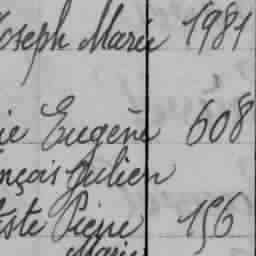 Joseph Marie 1981
ie Eugène 608
nçois Julien
iste Pierre 156
Marie